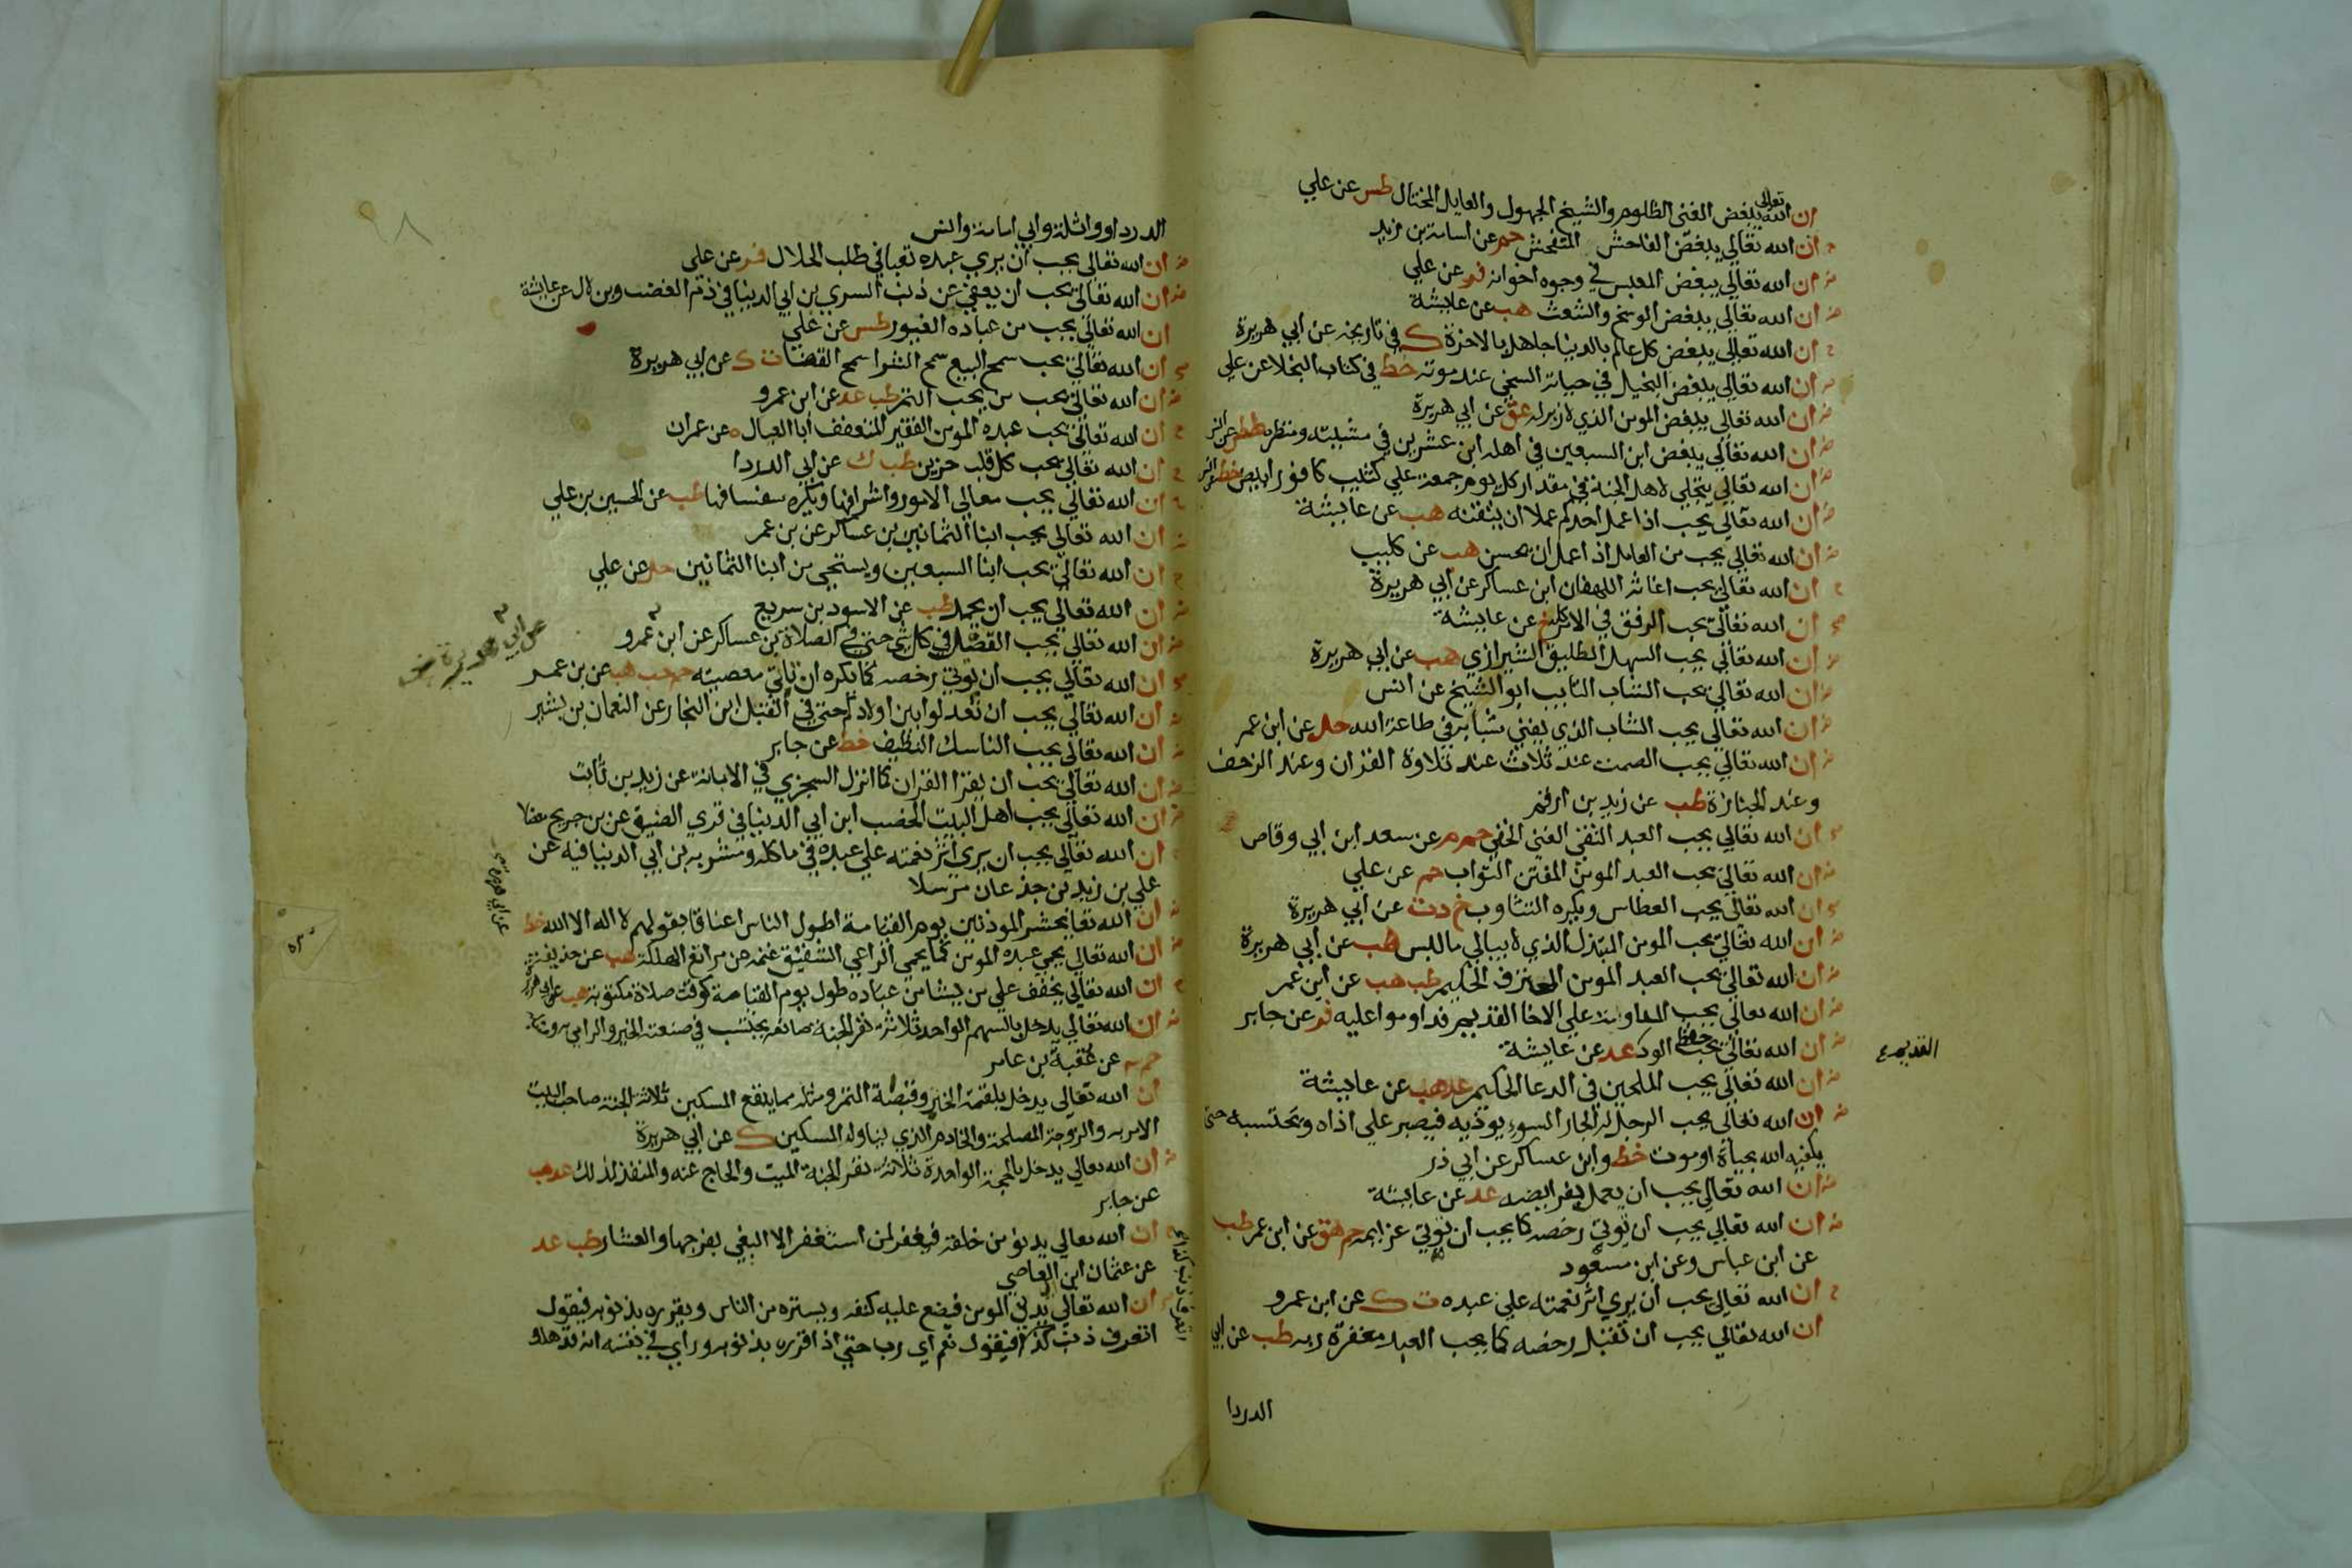 ان الله تعالى يبغض الغنى الظلوم والشيخ الجهول والعايل المختال طس عن علي
ان الله تعالي يبغض الفاحش المتفحش حم عن اسامة بن زيد
ان الله تعالي يبغض المعبس في وجوه اخوانه فر عن علي
ان الله تعالي يبغض الوسخ والشعث هب عن عايشة
ان الله تعالي يبغض كل عالم بالدنيا جاهل بالاخرة ك في تاريخه عن ابي هريرة
ان الله تعالي يبغض البخيل في حياته السخي عند موته خط في كتاب البخلا عن علي
ان الله تعالي يبغض المومن الذي لا زبر له عق عن ابي هريرة
ان الله تعالي يبغض ابن السبعين في اهله ابن عشرين في مشيته ومنظره طس عن انس
ان الله تعالي يتجلي لاهل الجنة في مقدار كل يوم جمعة علي كثيب كافور ابيض خط عن انس
ان الله تعالي يحب اذا عمل احدكم عملا ان يتقنه هب عن عايشة
ان الله تعالي يحب من العامل اذا عمل ان يحسن هب عن كليب
ان الله تعالي يحب اغاثة اللهفان ابن عساكر عن ابي هريرة
ان الله تعالي يحب الرفق في الامر كله خ عن عايشة
ان الله تعالي يحب السهل الطليق الشيرازي هب عن ابي هريرة
ان الله تعالي يحب الشاب التايب ابو الشيخ عن انس
ان الله تعالي يحب الشاب الذي يفني شبابه في طاعة الله حل عن ابن عمر
ان الله تعالي يحب الصمت عند ثلاث عند تلاوة القران وعند الزحف
وعند الجنازة طب عن زيد بن ارقم
ان الله تعالي يحب العبد التقي الغني الخفي حم م عن سعد ابن ابي وقاص
ان الله تعالي يحب العبد المومن المفتن التواب حم عن علي
ان الله تعالي يحب العطاس ويكره التثاوب خ د ت عن ابي هريرة
ان الله تعالي يحب المومن المتبذل الذي لا يبالي ما لبس هب عن ابي هريرة
ان الله تعالي يحب العبد المومن المحترف الحكيم طب هب عن ابن عمر
ان الله تعالي يحب المداومة علي الاخا القديم فداوموا عليه فر عن جابر
القديم
ان الله تعالي يحب حفظ الود عد عن عايشة
ان الله تعالي يحب الملحين في الدعا الحكيم عد هب عن عايشة
ان الله تعالي يحب الرجل له الجار السوء يوذيه فيصبر علي اذاه ويحتسبه حتي
يكفيه الله بحياة او موت خط وابن عساكر عن ابي ذر
ان الله تعالي يحب ان يعمل بفرايضه عد عن عايشة
ان الله تعالي يحب ان توتي رخصه كما يحب ان توتي عزايمه حم هق عن ابن عمر طب
عن ابن عباس وعن ابن مسعود
ان الله تعالي يحب ان يري اثر نعمته علي عبده ت ك عن ابن عمرو
ان الله تعالي يحب ان تقبل رخصه كما يحب العبد مغفرة ربه طب عن ابي
الدردا
٩٨
الدرداو واثلة وابي امامة وانس
ان الله تعالي يحب ان يري عبده تعبا في طلب الحلال فر عن علي
ان الله تعالي يحب ان يعفي عن ذنب السري بن ابي الدينا في ذم الغضب وبن لال عن عايشة
ان الله تعالي يحب من عباده الغيور طس عن علي
ان الله تعالي يحب سمح البيع سمح الشرا سمح القضا ت ك عن ابي هريرة
ان الله تعالي يحب من يحب التمر طب عد عن ابن عمرو
ان الله تعالي يحب عبده المومن الفقير المتعفف ابا العيال ه عن عمران
ان الله تعالي يحب كل قلب حزين طب ك عن ابي الدردا
ان الله تعالي يحب معالي الامور واشرافها ويكره سفسافها طب عن الحسين بن علي
ان الله تعالي يحب ابنا الثمانين بن عساكر عن بن عمر
ان الله تعالي يحب ابنا السبعين ويستحي من ابنا الثمانين حل عن علي
ان الله تعالي يحب ان يحمد طب عن الاسود بن سريع
ان الله تعالي يحب الفضل في كل شي حتي في الصلاة بن عساكر عن ابن عمرو
ان الله تعالي يحب ان توتي رخصه كما يكره ان تاتي معصيته حم حب هب عن بن عمر
ان الله تعالي يحب ان تعدلوا بين اولادكم حتي في القبل ابن النجار عن النعمان بن بشير
ان الله تعالي يحب الناسك النظيف خط عن جابر
ان الله تعالي يحب ان يقرا القران كما انزل السجزي في الابانة عن زيد بن ثابت
ان الله تعالي يحب اهل البيت الخصب ابن ابي الدينا في قري الضيف عن بن جريج معضلا
ان الله تعالي يحب ان يري اثر نعمته علي عبده في ماكله ومشربه بن ابي الدينا فيه عن
علي بن زيد بن جذعان مرسلا
ان الله تعا يحشر الموذنين يوم القيامة اطول الناس اعناقا بقولهم لا اله الا الله خط
عن ابي هريرة
ان الله تعالي يحمي عبده المومن كما يحمي الراعي الشفيق غنمه عن مراتع الهلكة هب عن حذيفة
ان الله تعالي يخفف علي من يشا من عباده طول يوم القيامة كوقت صلاة مكتوبة هب عن ابي هريرة
ان الله تعالي يدخل بالسهم الواحد ثلاثة نفر الجنة صانعه يحتسب في صنعته الخير والرامي به
عن عقبة بن عامر
ان الله تعالي يدخل بلقمة الخبز وقبضة التمر ومثله مما ينفع المسكين ثلاثة الجنة صاحب البيت
الامر به والزوجة المصلحة والخادم الذي يناوله المسكين ك عن ابي هريرة
ان الله تعالي يدخل بالحجة الواحدة ثلاثة نفر الجنة الميت والحاج عنه والمنفذ لذلك عد هب
عن جابر
ان الله تعالي يدنو من خلقه فيغفر لمن استغفر الا البغي بفرجها والعشار طب عد
عن عثمان ابن العاصي
ان الله تعالي يدني المومن فيضع عليه كنفه ويستره من الناس ويقرره بذنوبه فيقول
اتعرف ذنب كذا فيقول نعم اي رب حتي اذا قرره بذنوبه وراي في نفسه انه قد هلك